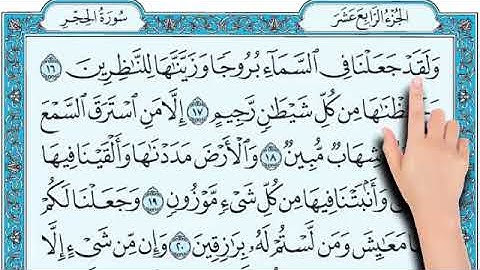 الجُزْءُ الرَّابِعَ عَشَرَ
سُورَةُ الحِجْرِ
وَلَقَدْ جَعَلْنَا فِى ٱلسَّمَآءِ بُرُوجًا وَزَيَّنَّٰهَا لِلنَّٰظِرِينَ ١٦
مِن كُلِّ شَيْطَٰنٍ رَّجِيمٍ ١٧ إِلَّا مَنِ ٱسْتَرَقَ ٱلسَّمْعَ
شِهَابٌ مُّبِينٌ ١٨ وَٱلْأَرْضَ مَدَدْنَٰهَا وَأَلْقَيْنَا فِيهَا
وَأَنۢبَتْنَا فِيهَا مِن كُلِّ شَىْءٍ مَّوْزُونٍ ١٩ وَجَعَلْنَا لَكُمْ
مَعَٰيِشَ وَمَن لَّسْتُمْ لَهُۥ بِرَٰزِقِينَ ٢٠ وَإِن مِّن شَىْءٍ إِلَّا